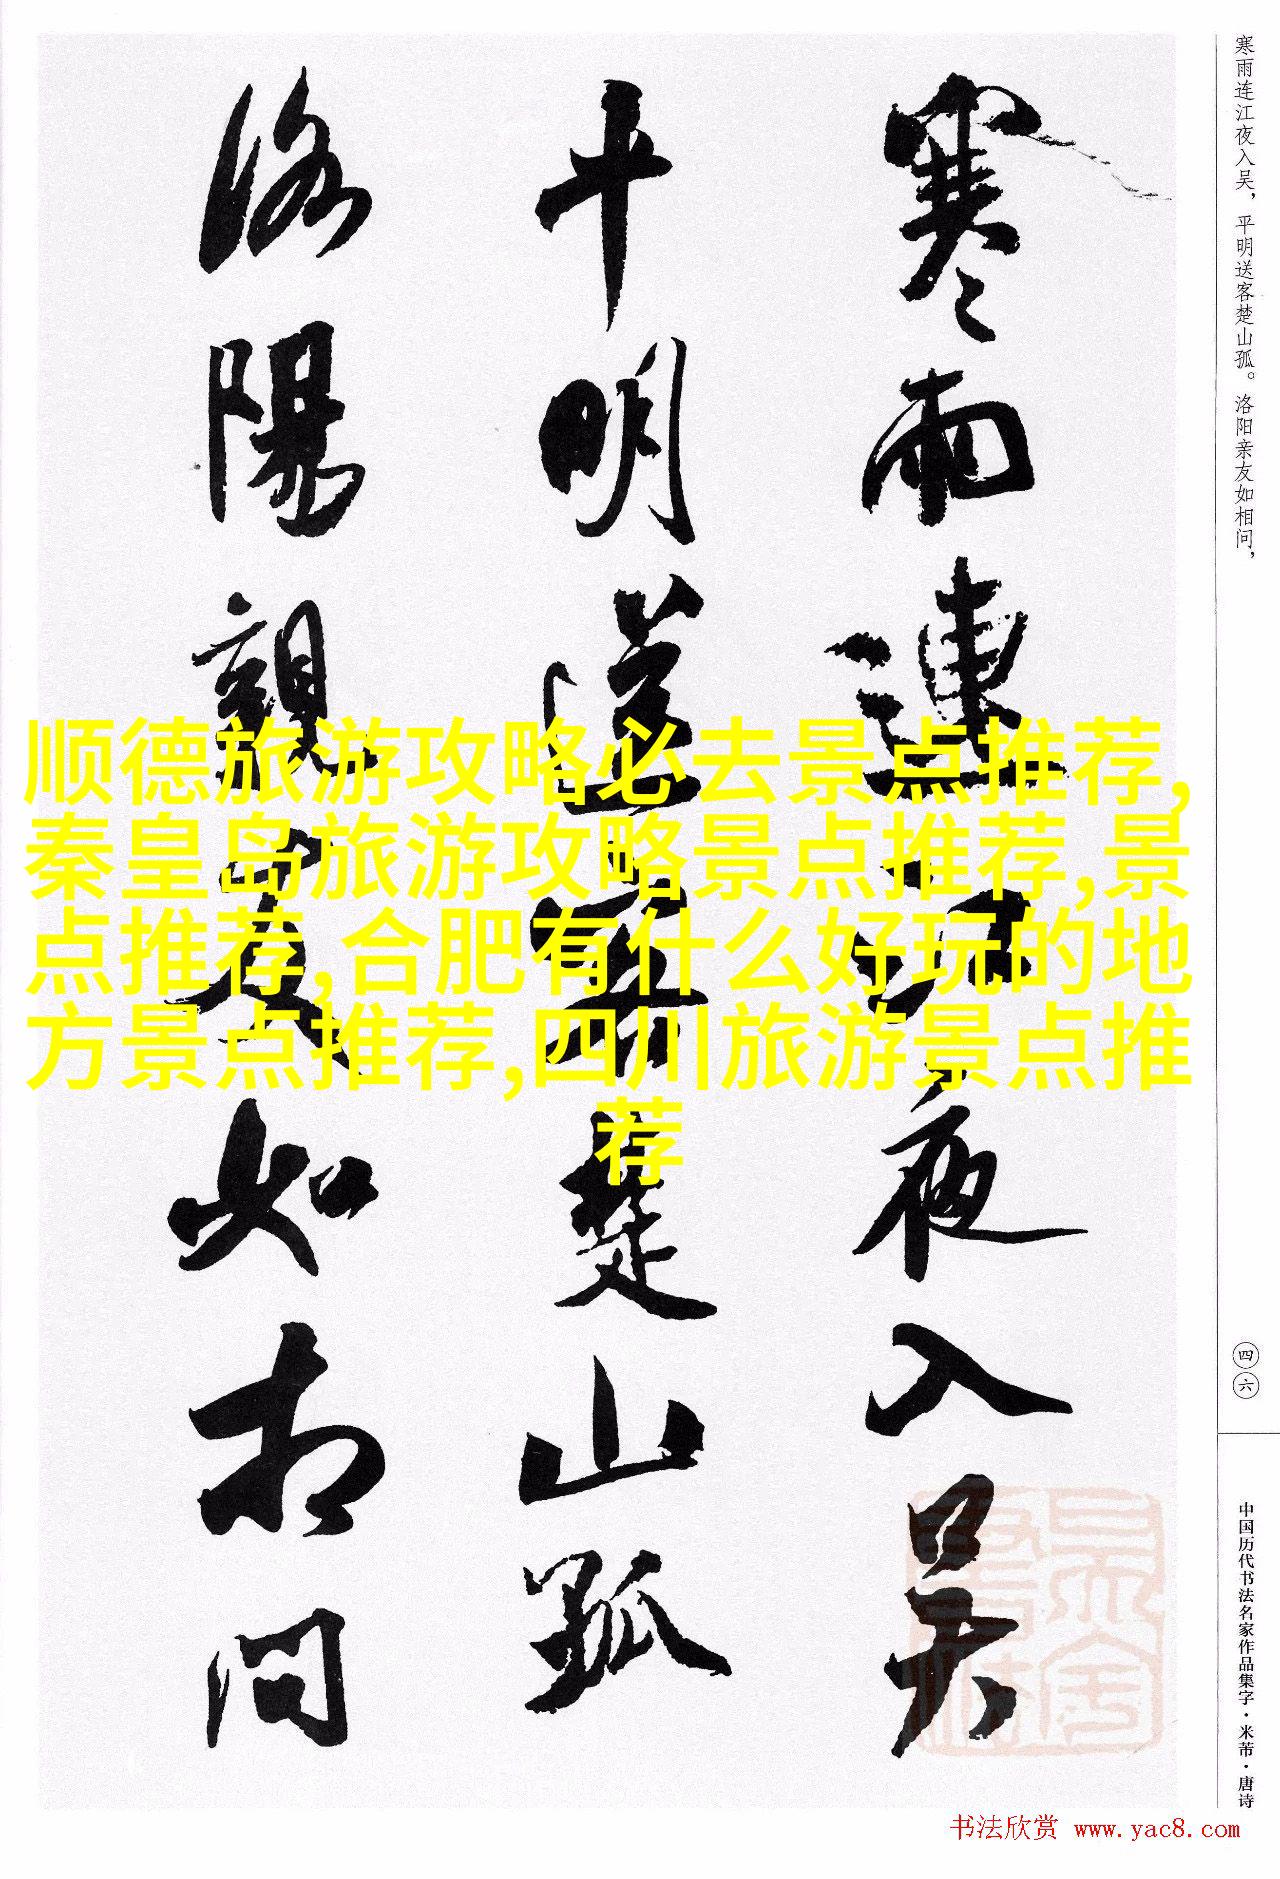 寒雨连江夜入吴，平明送客楚山孤。洛阳亲友如相问，
四六
中国历代书法名家作品集字·米芾·唐诗
寒雨連江夜入吴
平明送客楚山孤
洛陽親友如相问
顺德旅游攻略必去景点推荐,
秦皇岛旅游攻略景点推荐,景
点推荐,合肥有什么好玩的地
方景点推荐,四川旅游景点推
荐
书法欣赏 www.yac8.com